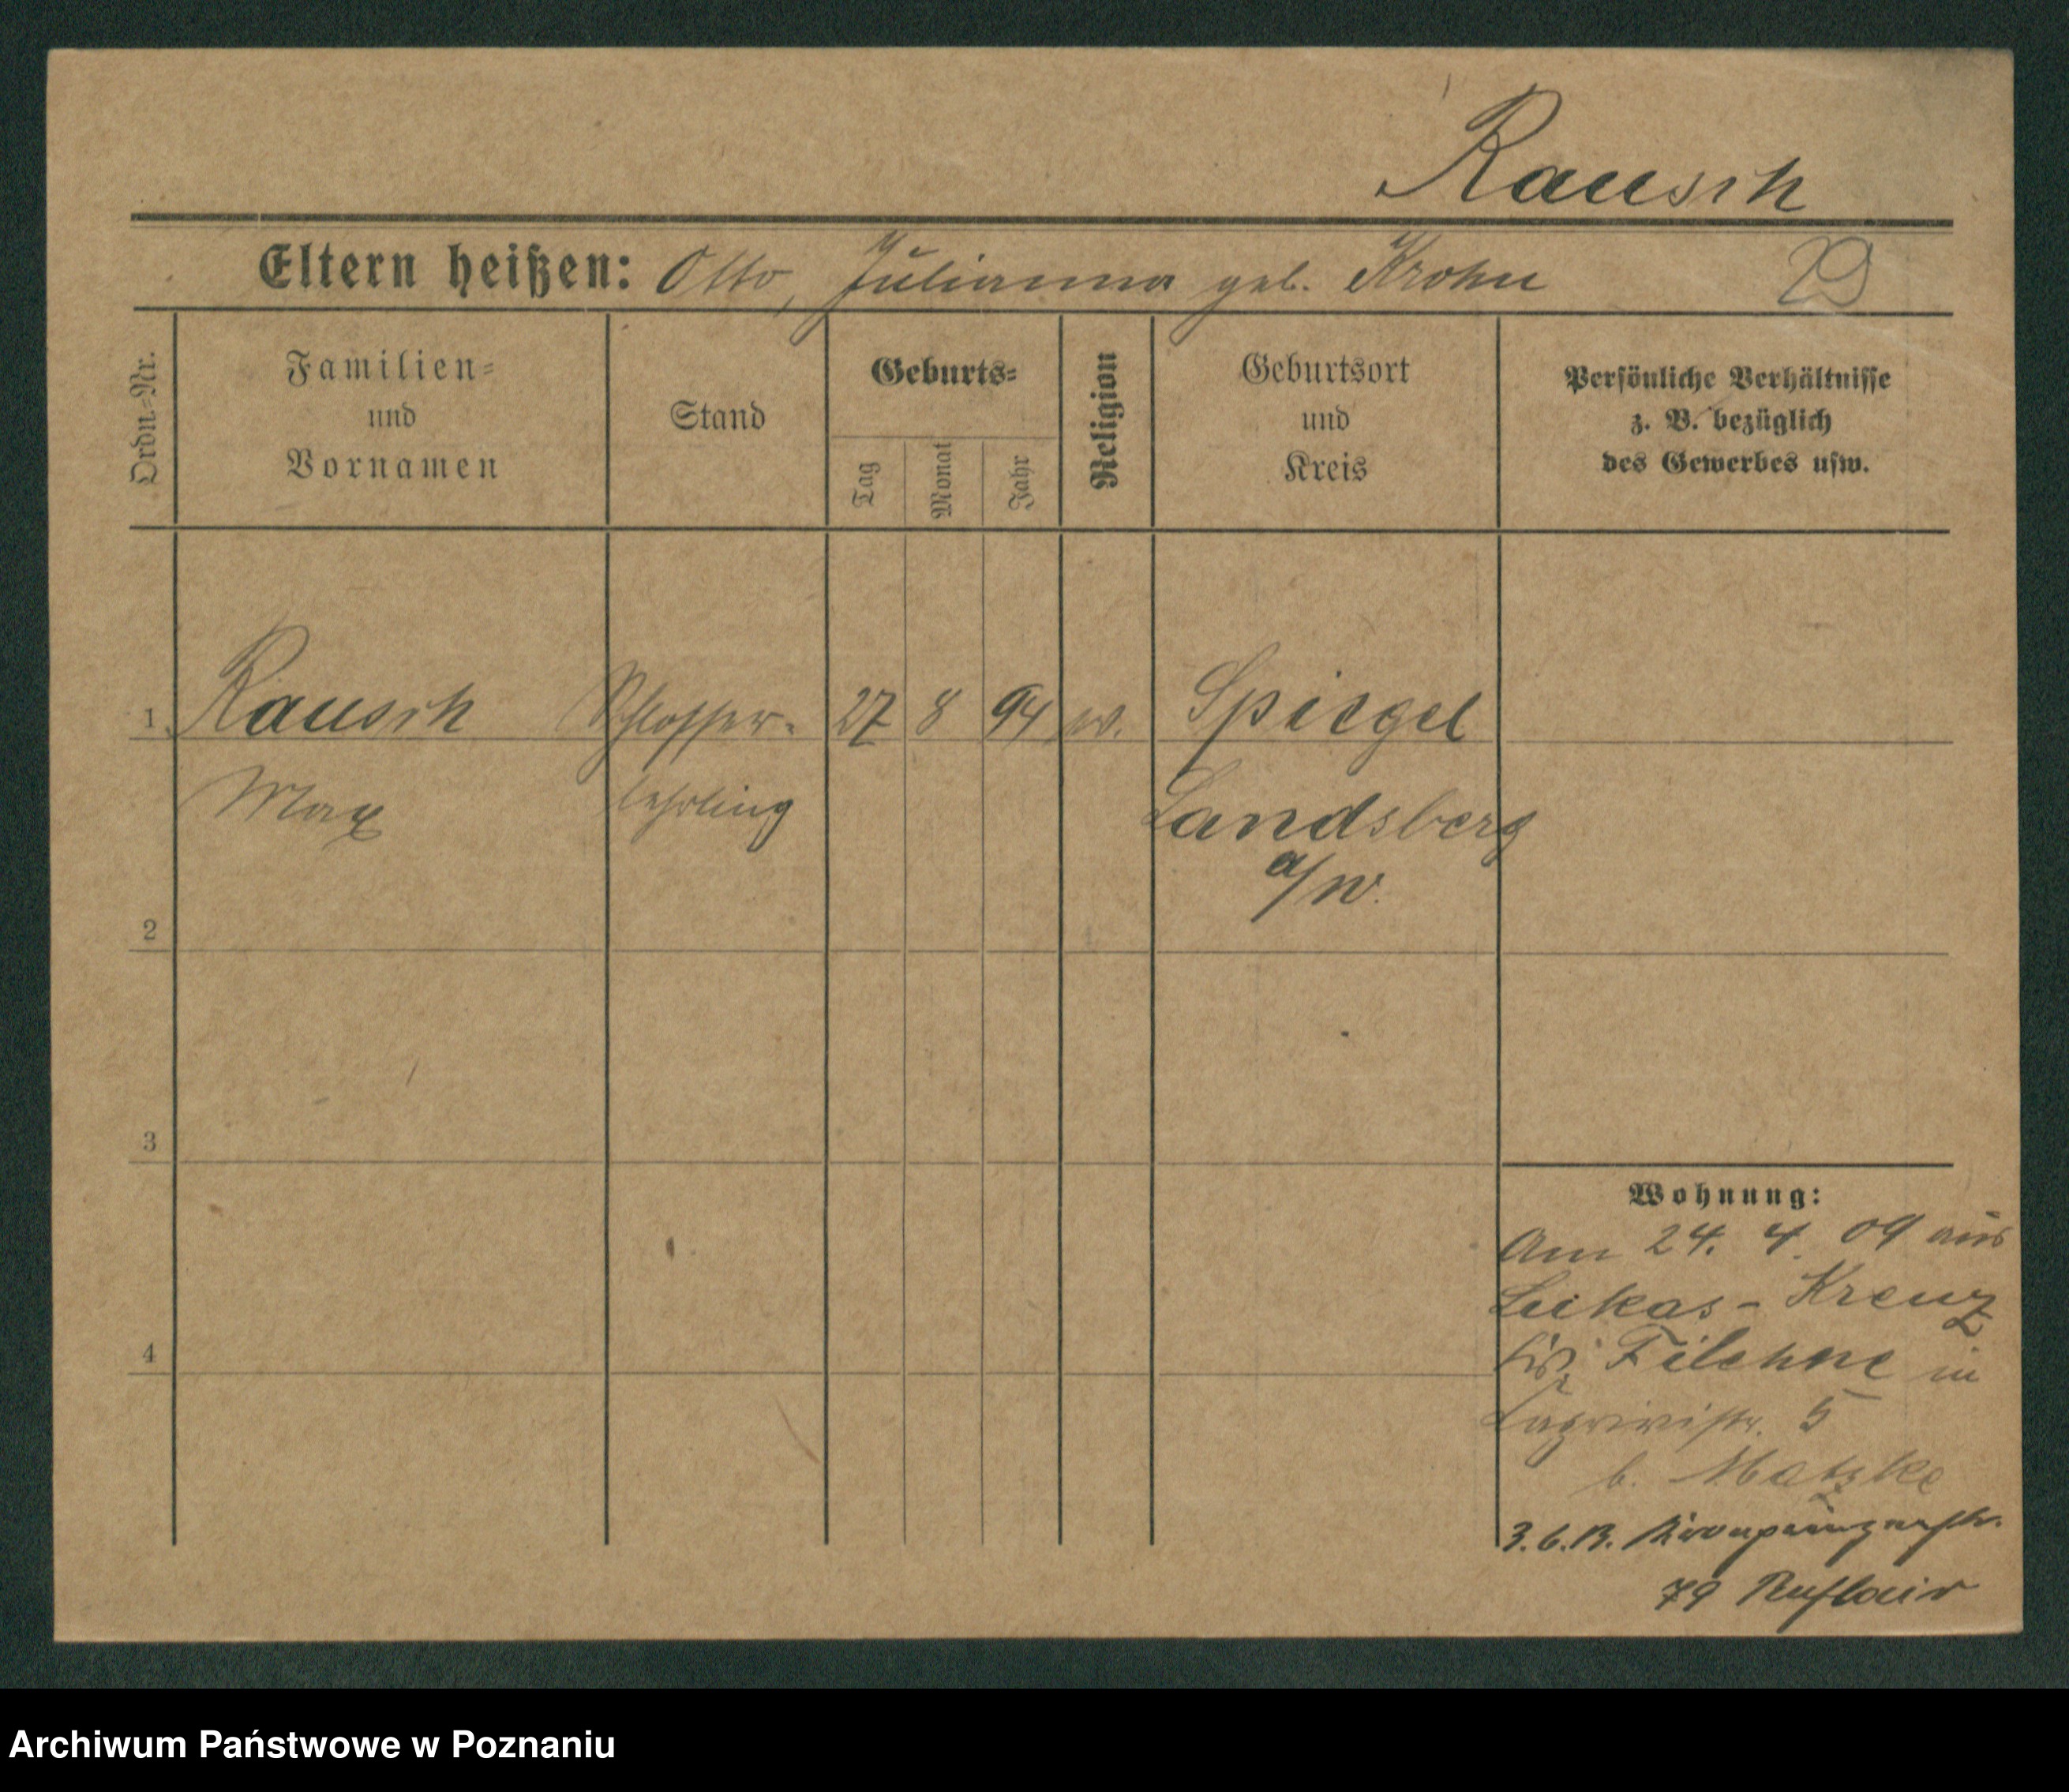 Rausch
Eltern heißen: Otto, Julianna geb. Krohn
Ordn=Nr.
Familien=
und
Vornamen
Stand
Geburts=
Tag
Monat
Jahr
Religion
Geburtsort
und
Kreis
Persönliche Verhältnisse
z. B. bezüglich
des Gewerbes usw.
1 Rausch Schlosser- 27 8 94 ev. Spiegel
Max lehrling Landsberg
a/W.
2
3
4
Wohnung:
Am 24. 4. 09 aus
Lukas-Kreuz
Filehne in
5
b. Matzke
3.6.13.
79
Archiwum Państwowe w Poznaniu